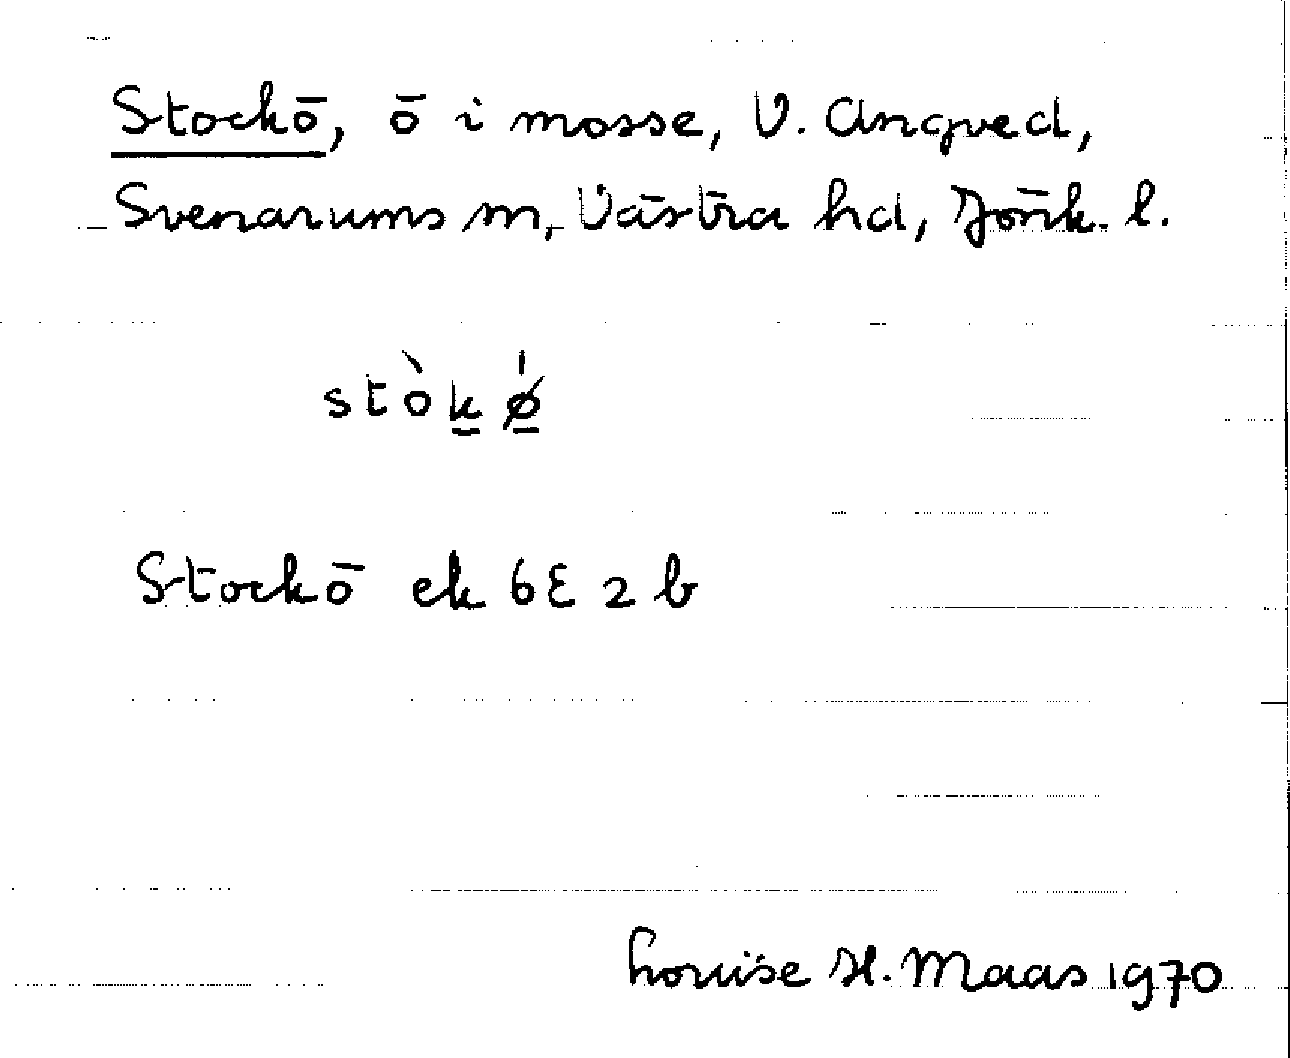 Stockö, ö i mosse, V. Angqved,
Svenarums sn, Västra hd, Jönk. l.
stòkø̍
Stockö ek 6E 2 b
Louise H. Maas 1970